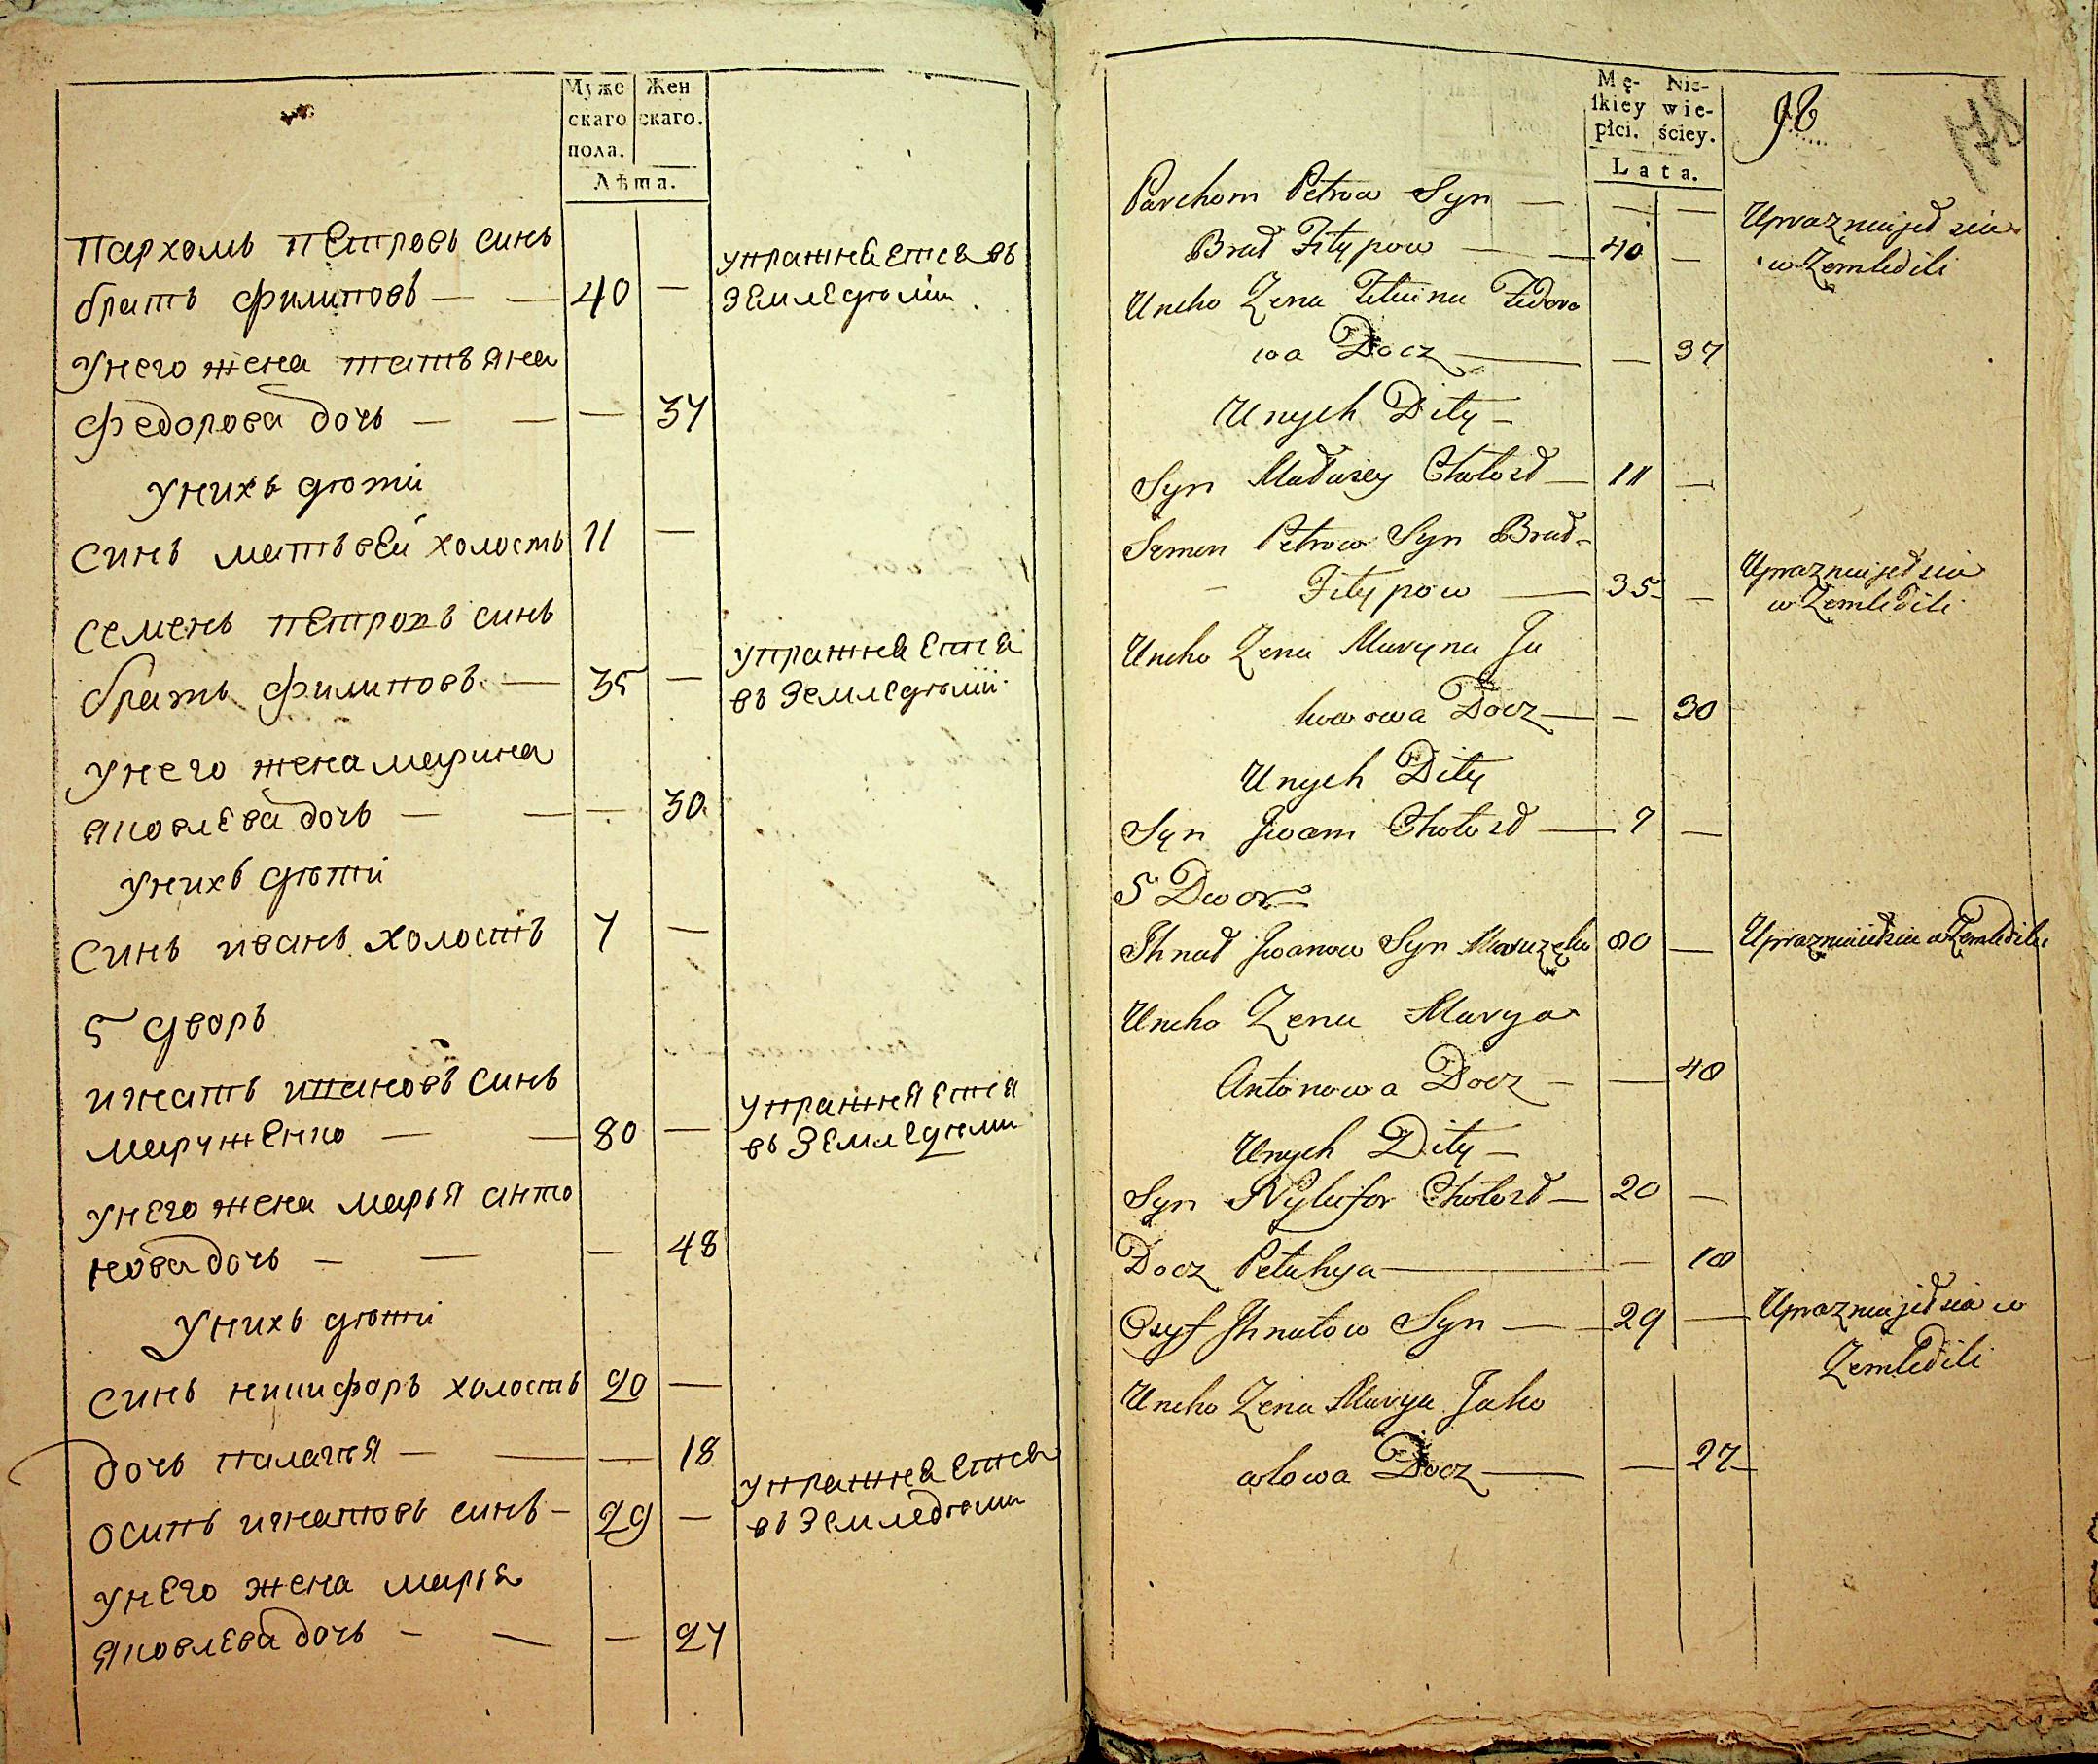 Муже Жен
скаго скаго.
пола.
Лѣта.
пархомъ петровъ синъ
братъ филиповъ — — 40 — упражняетса въ
земледѣліи
унего жена татъяна
федорова дочь — — — 37
унихъ дѣти
синъ матвей холостъ 11 —
семенъ петровъ синъ
братъ филиповъ — 35 — упражняетса
въ земледѣліи
унего жена марина
яковлева дочь — — — 30
унихъ дѣти
синъ иванъ холостъ 7 —
5 дворъ
игнатъ ивановъ синъ
марченко — — 80 — упражняетса
въ земледѣлии
унего жена марья анто
нова дочь — — — 48
унихъ дѣти
синъ никифоръ холостъ 20 —
дочь палагея — — — 18
осипъ игнатовъ синъ — 29 — упражняетса
въ земледѣлии
унего жена марья
яковлева дочь — — — 27
Mę- Nie-
ſkiey wie-
płci. ściey.
Lata.
178
Parchom Petrow Syn — — — Uprazniajet sia
Brat Fitypow — — 40 — w Zemledili
Uneho Zena Tetiana Fedoro
wa Docz — — 37
Unych Dity —
Syn Matwiey Chołost — 11 —
Semen Petrow Syn Brat —
Fitypow — 35 — Uprazniajet sia
w Zemledili
Uneho Zena Maryna Ja
kowowa Docz — — 30
Unych Dity
Syn Jwan Chołost — 7 —
5 Dwor
Ihnat Jwanow Syn 80 — Uprazniaietsia w Zemledili
Uneho Zena Marya
Antonowa Docz — — 48
Unych Dity —
Syn Nykifor Chołost — 20 —
Docz Petahya — — 18
Osyf Ihnatow Syn — — 29 — Uprazniajet sia w
Zemledili
Uneho Zena Marya Jako
wlowa Docz — — 27